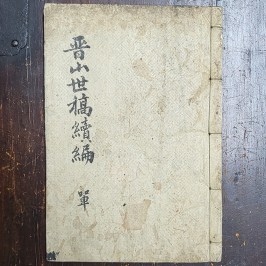 晋山世稿續編
單